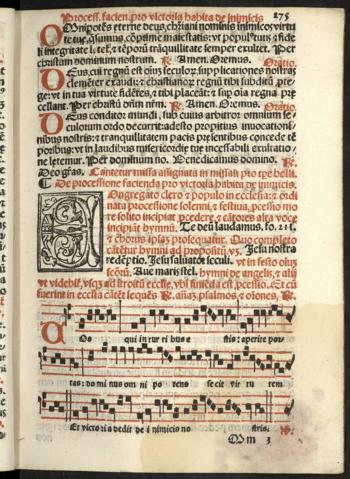 Process. facien. pro victoria habita de inimicis 275
OMnipotẽs eterne deus, chr̃iani nominis inimicos virtu
te tua, q̃sumus, cõprime maiestatis: vt populus tuus, ⁊ fide
li integritate letet᷑, ⁊ tẽporũ trãquillitate semper exultet. Per
christum dominum nostrum. ℟. Amen. Oremus. Oratio.
DEus, cui regnũ est oĩm seculoꝝ, supplicationes nostras
clemẽter exaudi: ⁊ christianoꝝ regnũ tibi subditũ pro
ge: vt in tua virtute fidẽtes, ⁊ tibi placeãt: ⁊ sup oĩa regna pre
cellant. Per christũ dñm nr̃m. ℟. Amen. Oremus. Oratio.
DEus conditor mundi, sub cuius arbitrio omnium se
culorum ordo decurrit: adesto propitius inuocationi-
bus nostris: ⁊ tranquillitatem pacis presentibus concede tẽ
poribus: vt in laudibus misericordie tue incessabili exultatio-
ne letemur. Per dominum nr̃o. Benedicamus domino. ℟.
Deo gr̃as. Cantetur missa assignata in missali pro tpe belli.
¶ De processione facienda pro victoria habita de inimicis.
COngregato clero ⁊ populo in ecclesia: ⁊ ordi
nata processione solenni, ⁊ festiua, pcessio mo
re solito incipiat procedere, ⁊ cãtores alta voce
incipiãt hymnũ. Te deũ laudamus. fo. 211.
⁊ chorus ipsaꝫ prosequatur. Quo completo
cãtẽtur hymni ad propositũ, vt. Jesu nostra
redẽptio. Jesu saluator seculi. vt in festo oĩuꝫ
scõrũ. Aue maris stel. hymni de angelis, ⁊ alij
vt videbit᷑, vsqꝫ ad introitũ eccl̃ie, vbi finienda est pcessio. Et cũ
fuerint in eccl̃ia cãtẽt sequẽs ℟. añas, psalmos, ⁊ oĩones. ℟.
A Do qui in tur ri bus e stis: aperite por
tas: do mi nus om ni po tens fe cit vir tu tem
Et victo ri a dedit de i nimicis no stris. ℣.
Mm 3